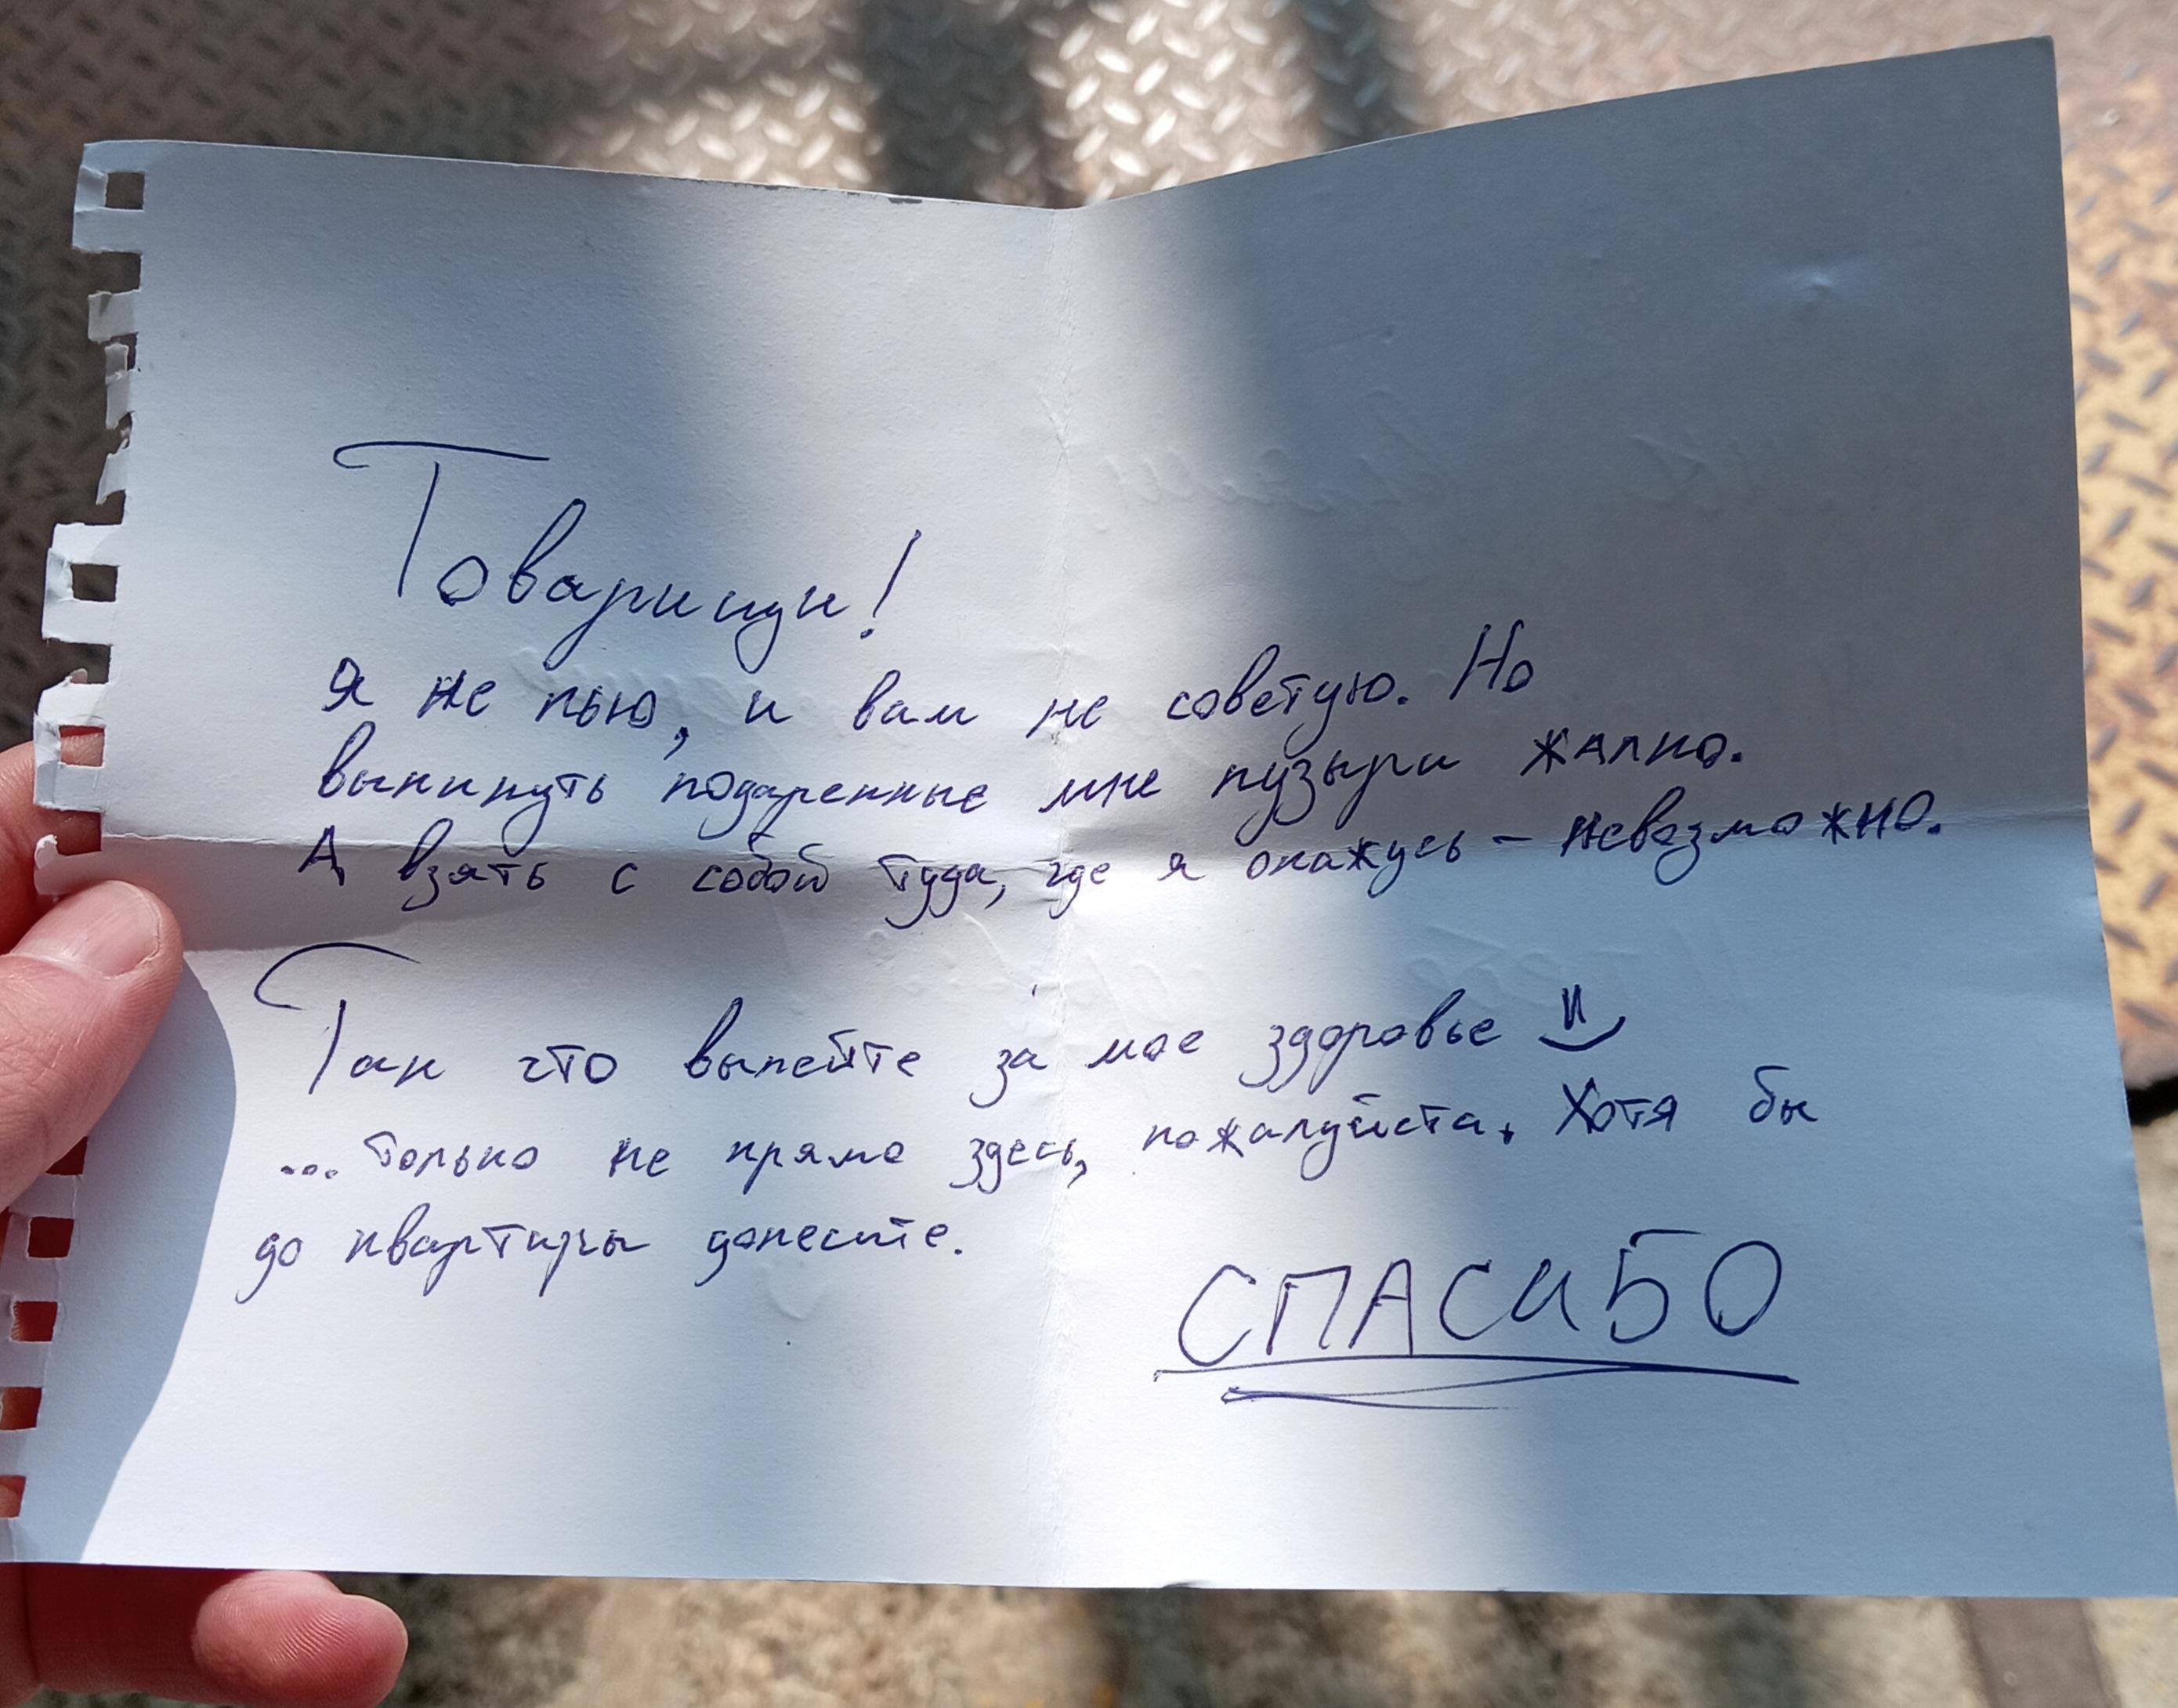 Товарищи!
я не пью, и вам не советую. Но
выкинуть подаренные мне пузыри жалко.
А взять с собой туда, где я окажусь - невозможно.
Так что выпейте за мое здоровье
... только не прямо здесь, пожалуйста. Хотя бы
до квартиры донесите.
СПАСИБО